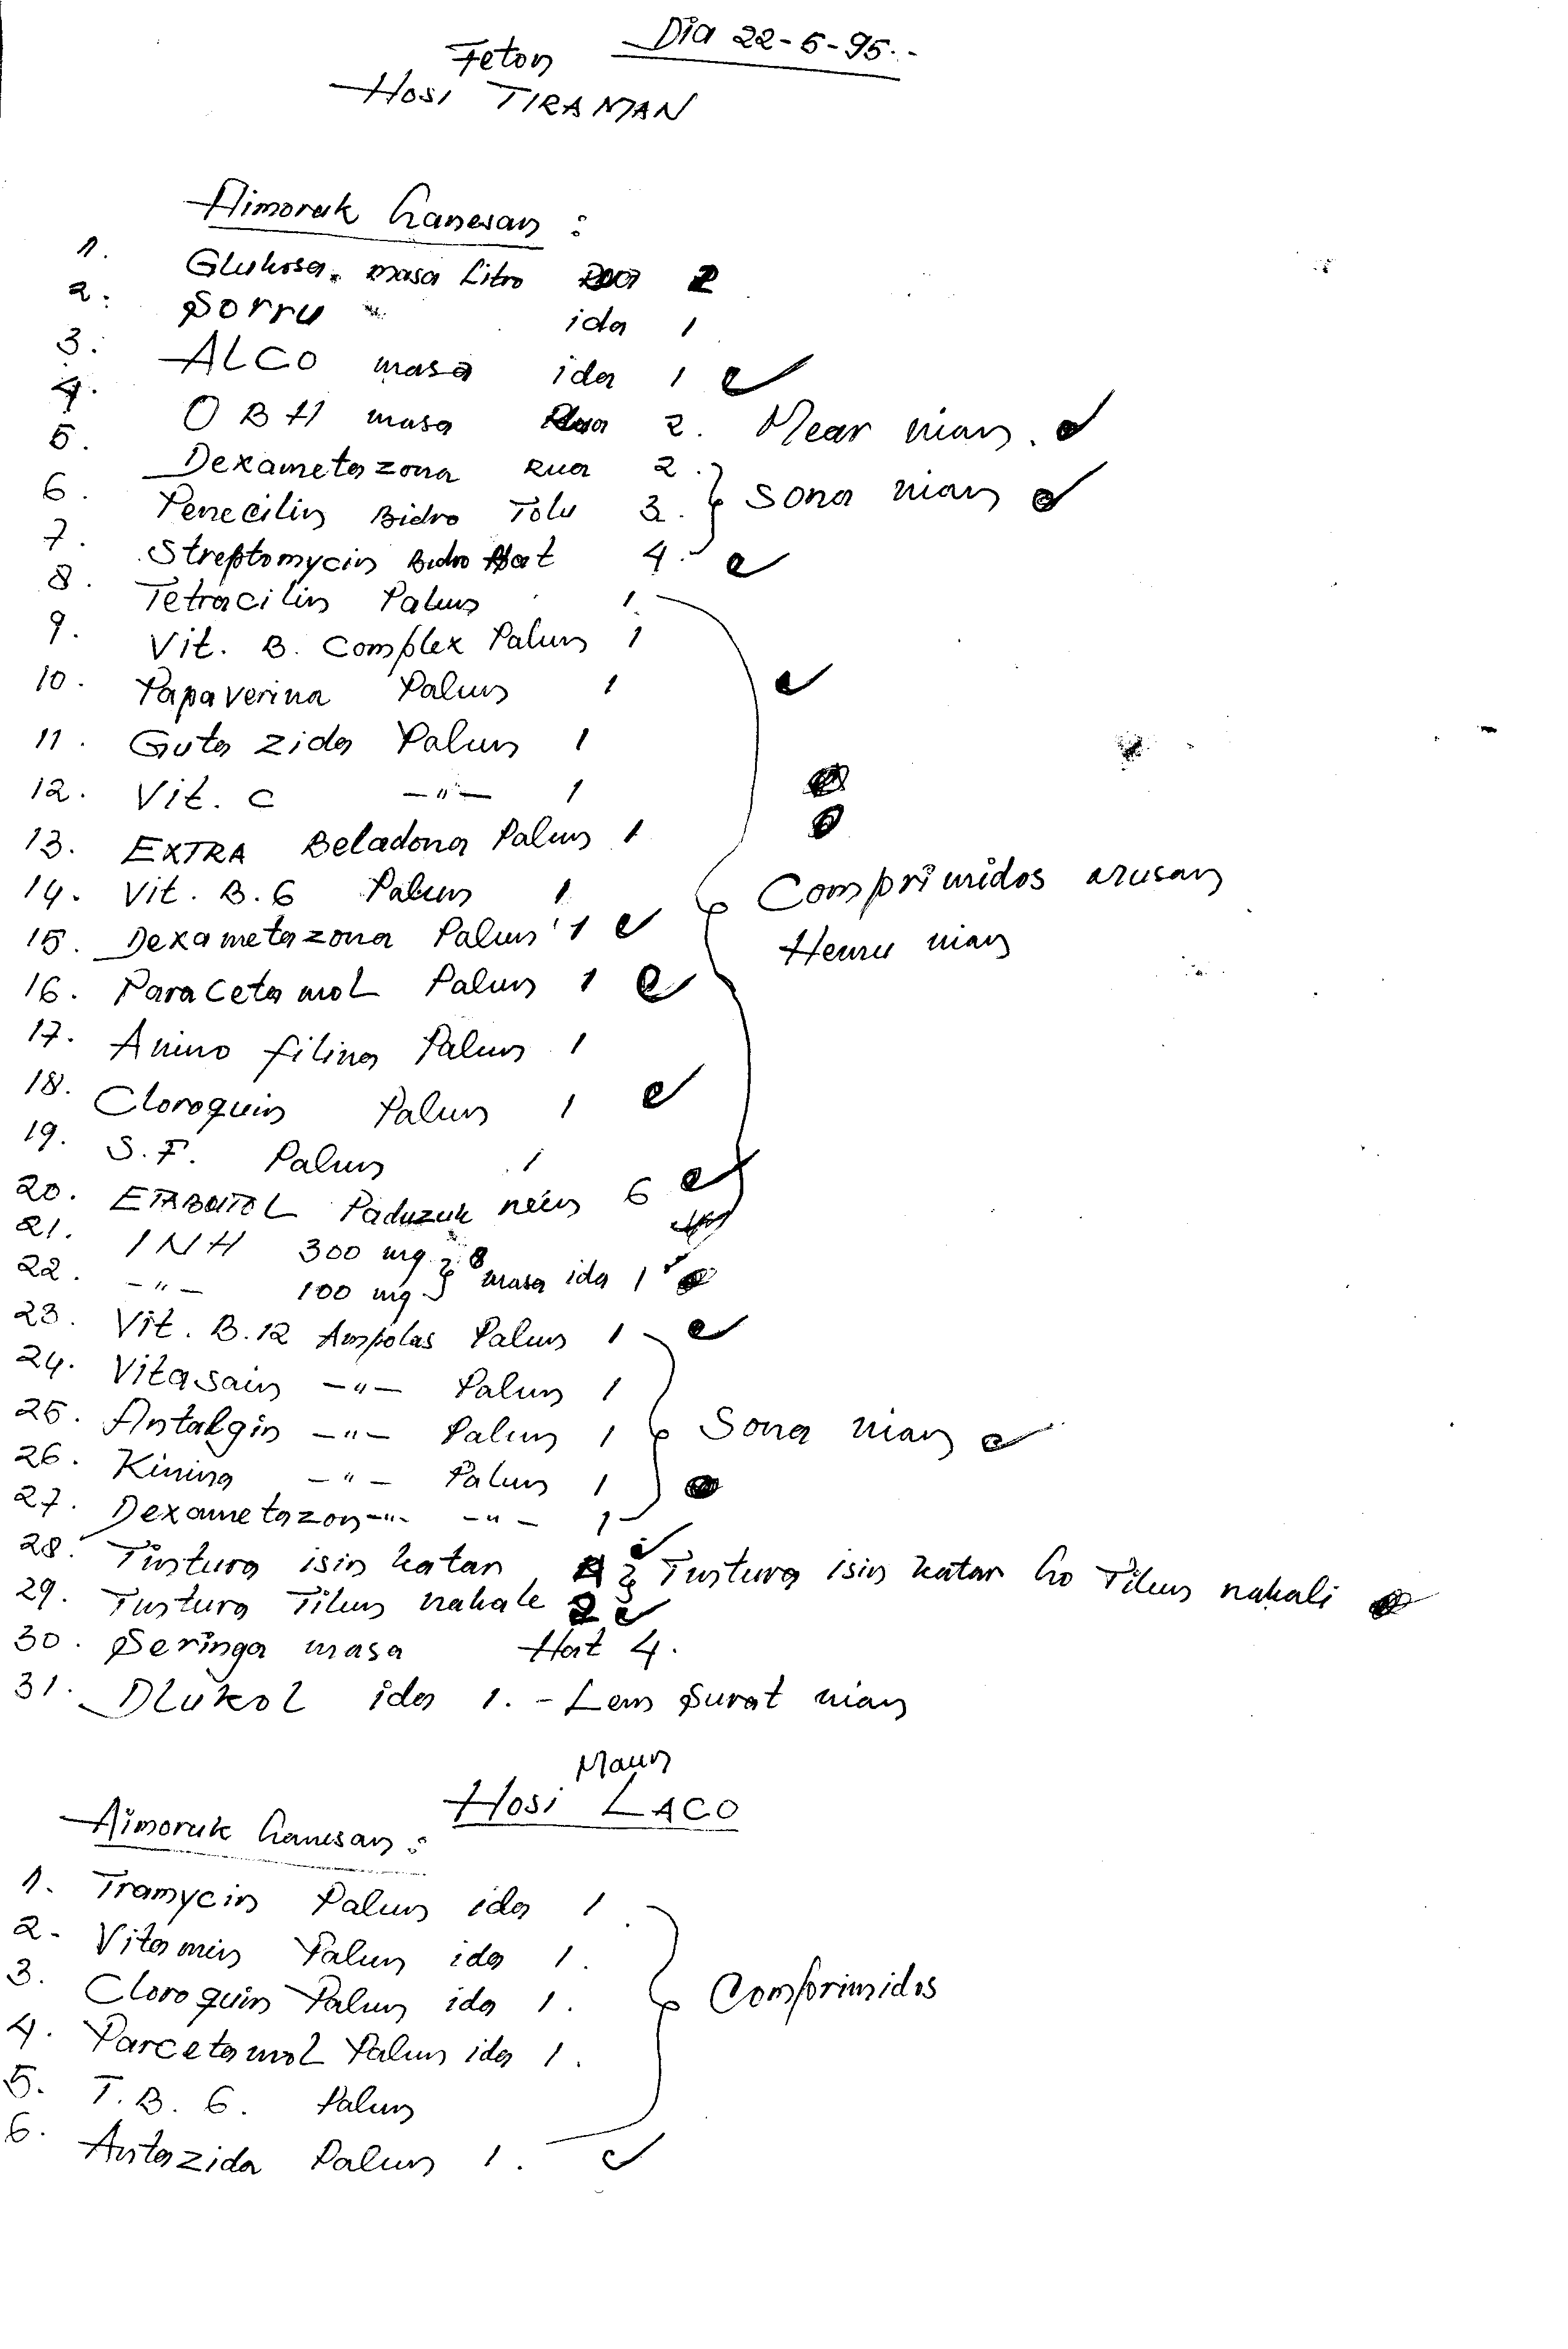 Dia 22-5-95.-
Feton
Hosi TIRAMAN
Aimoruk hanesan :
1. Glukosa. masa Litro Rua 2
2. Sorru " ida 1
3. ALCO masa ida 1
4. OBH masa Rua 2. Mear nian.
5. Dexametazona Rua 2.
6. Penecilin Bidro Tolu 3. Sona nian
7. Streptomycin Bidro Hat 4.
8. Tetracilin Palun 1.
9. Vit. B. Complex Palun 1
10. Papaverina Palun 1
11. Guta zida Palun 1
12. Vit. C -"- 1
13. EXTRA Beladona Palun 1
14. Vit. B.6 Palun 1
Comprimidos arusan
15. Dexametazona Palun 1
Hemu nian
16. Paracetamol Palun 1
17. Amino filina Palun 1
18. Cloroquin Palun 1
19. S.F. Palun 1
20. ETABUTOL Paduzuk neen 6
21. INH 300 mg.
22. -"- 100 mg. masa ida 1
23. Vit. B.12 Ampolas Palun 1
24. Vitasain -"- Palun 1
25. Antalgin -"- Palun 1 Sona nian
26. Kinina -"- Palun 1
27. Dexametazon -"- -"- 1
28. Tintura isin katar Tuntura isin katar ho Tilun nakali
29. Tuntura Tilun nakale 2
30. Seringa masa Hat 4.
31. DLukol ida 1. - Lem Surat nian
Maun
Hosi LACO
Aimoruk hanesan :
1. Tramycin Palun ida 1
2. Vitamin Palun ida 1.
3. Cloroquin Palun ida 1. Comprimidos
4. Parcetamol Palun ida 1.
5. T.B.6. Palun
6. Antazida Palun 1.